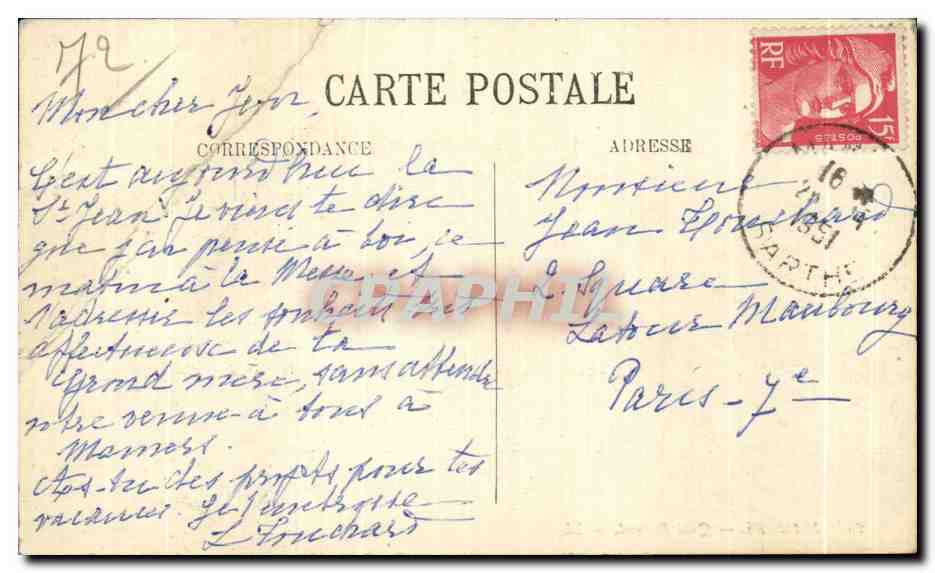 72
CARTE POSTALE
CORRESPONDANCE
Mon cher Jean,
C'est aujourd'hui la
St Jean Je viens te dire
que j'ai pensé à toi, ce
matin à la Messe et
t'adresse les souhaits très
affectueux de ta
Grand mère, sans attendre
votre venue à tous à
Mamers.
As-tu des projets pour tes
vacances. Je t'embrasse
L Fouchard
ADRESSE
Monsieur
Jean Fouchard
2 Square
Latour Maubourg
Paris - 7e
RF
15F
POSTES
16
1951
SARTHE
CPAPHIL